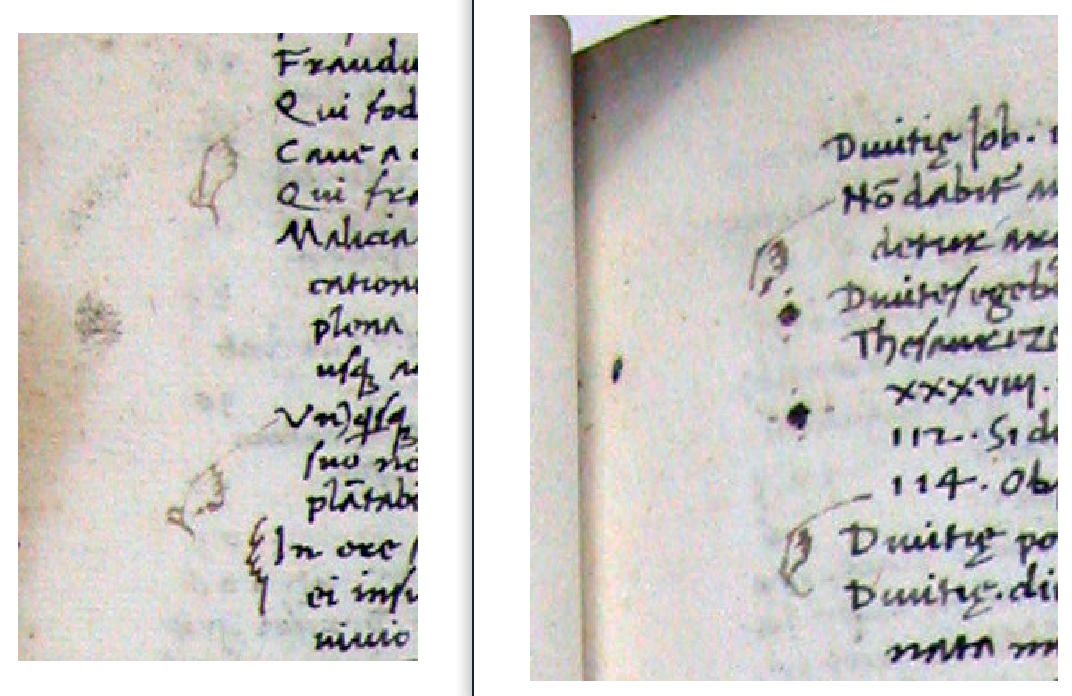 Fraudu
Qui fod
Caue a
Qui fra
Malicia
cation
plena
usq
Vn
suo no
plātabi
In ore
ei insu
niuio
Diuitię Iob.
Nō dabit
detur
Diuites egeb
Thesaurize
xxxviii.
112. Si d
114. Ob
Diuitię po
Diuitię. di
nata